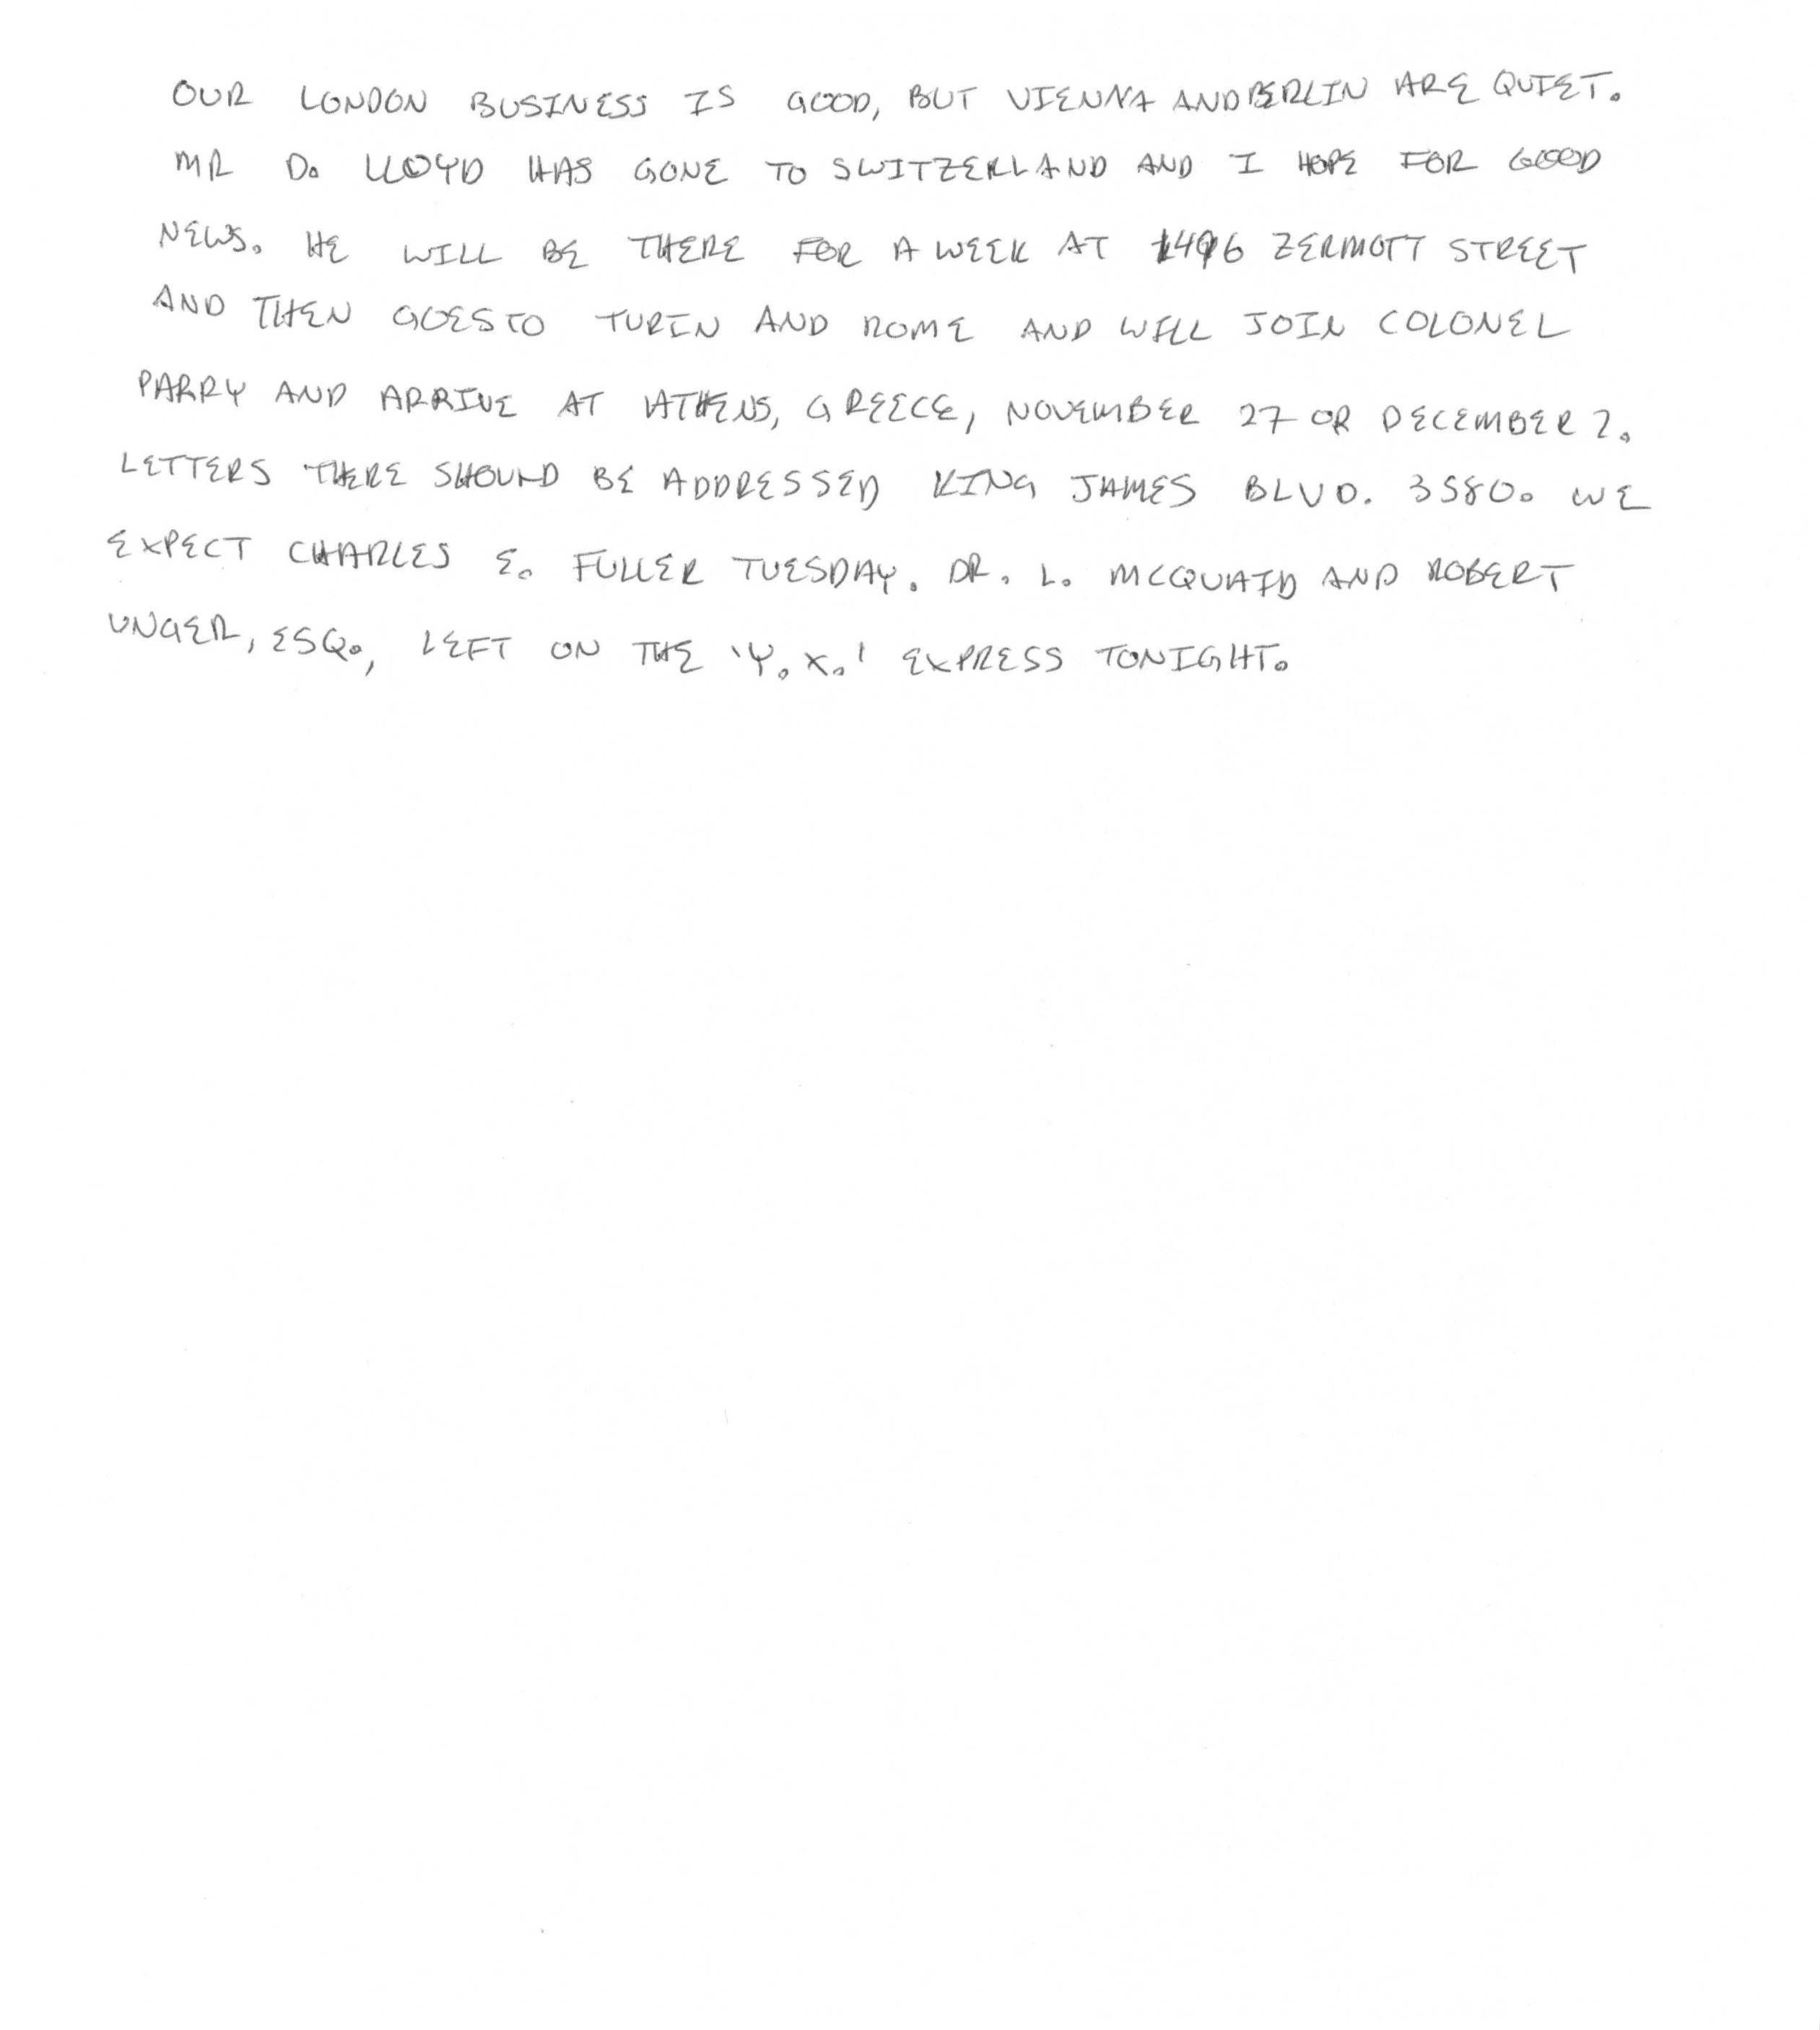 OUR LONDON BUSINESS IS GOOD, BUT VIENNA AND BERLIN ARE QUIET.
MR D. LLOYD HAS GONE TO SWITZERLAND AND I HOPE FOR GOOD
NEWS. HE WILL BE THERE FOR A WEEK AT 1496 ZERMOTT STREET
AND THEN GOES TO TURIN AND ROME AND WILL JOIN COLONEL
PARRY AND ARRIVE AT ATHENS, GREECE, NOVEMBER 27 OR DECEMBER 2.
LETTERS THERE SHOULD BE ADDRESSED KING JAMES BLVD. 3580. WE
EXPECT CHARLES E. FULLER TUESDAY. DR. L. MCQUAID AND ROBERT
UNGER, ESQ., LEFT ON THE 'Y. X.' EXPRESS TONIGHT.